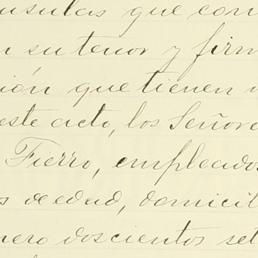 usulas que con
n su tenor y firm
ión que tienen
este acto, los Señore
Fierro, empleados
s de edad, domicil
nero doscientos set